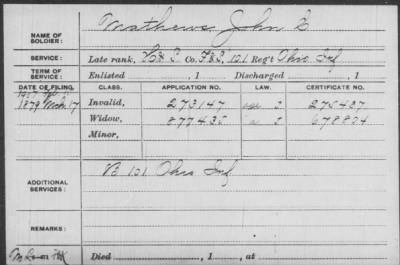 NAME OF SOLDIER: Mathews, John B
SERVICE: Late rank, Co. F&S, 101 Reg't Ohio Inf
TERM OF SERVICE: Enlisted , 1 Discharged , 1
DATE OF FILING. CLASS. APPLICATION NO. LAW. CERTIFICATE NO.
1879 Mch 17 Invalid, 273147 275437
Widow, 877435 678804
Minor,
ADDITIONAL SERVICES: B 101 Ohio Inf
REMARKS:
Died , 1 , at